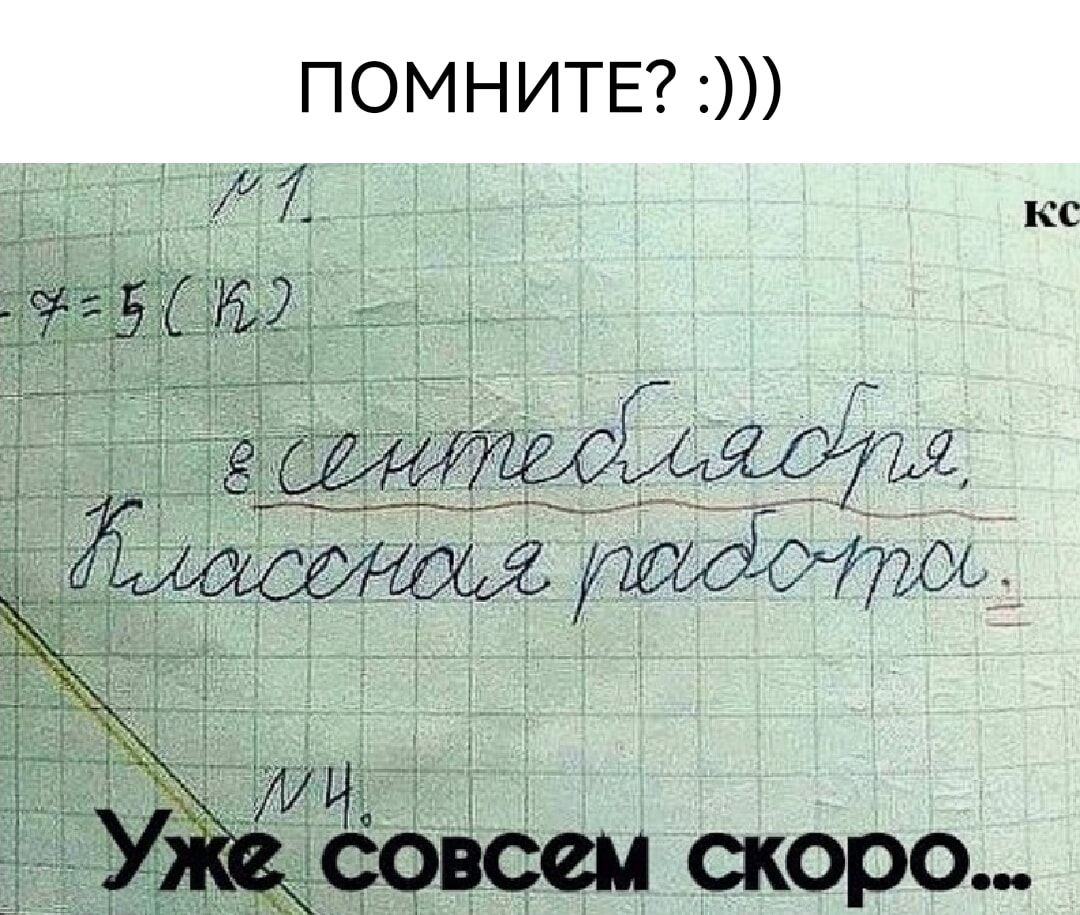 ПОМНИТЕ? :)))
№1.
кс
- 7 = 5 ( К )
8 сентеблября,
Классная работа.
№4.
Уже совсем скоро...